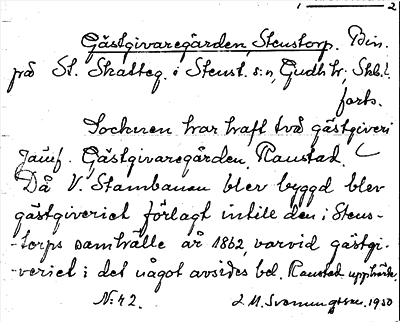 2
Gästgivaregården, Stenstorp. Bin.
på St. Skatteg. i Stenst. s:n, Gudh. hr; Skb. l.
forts.
Socknen har haft två gästgiveri
Jämf. Gästgivaregården, Raustad.
Då V. Stambanan blev byggd blev
gästgiveriet förlagt intill den i Stens-
-torps samhälle år 1862, varvid gästgi-
-veriet i det något avsides bel. Raustad upphörde.
N:r 42. L M. Svenungsson. 1930